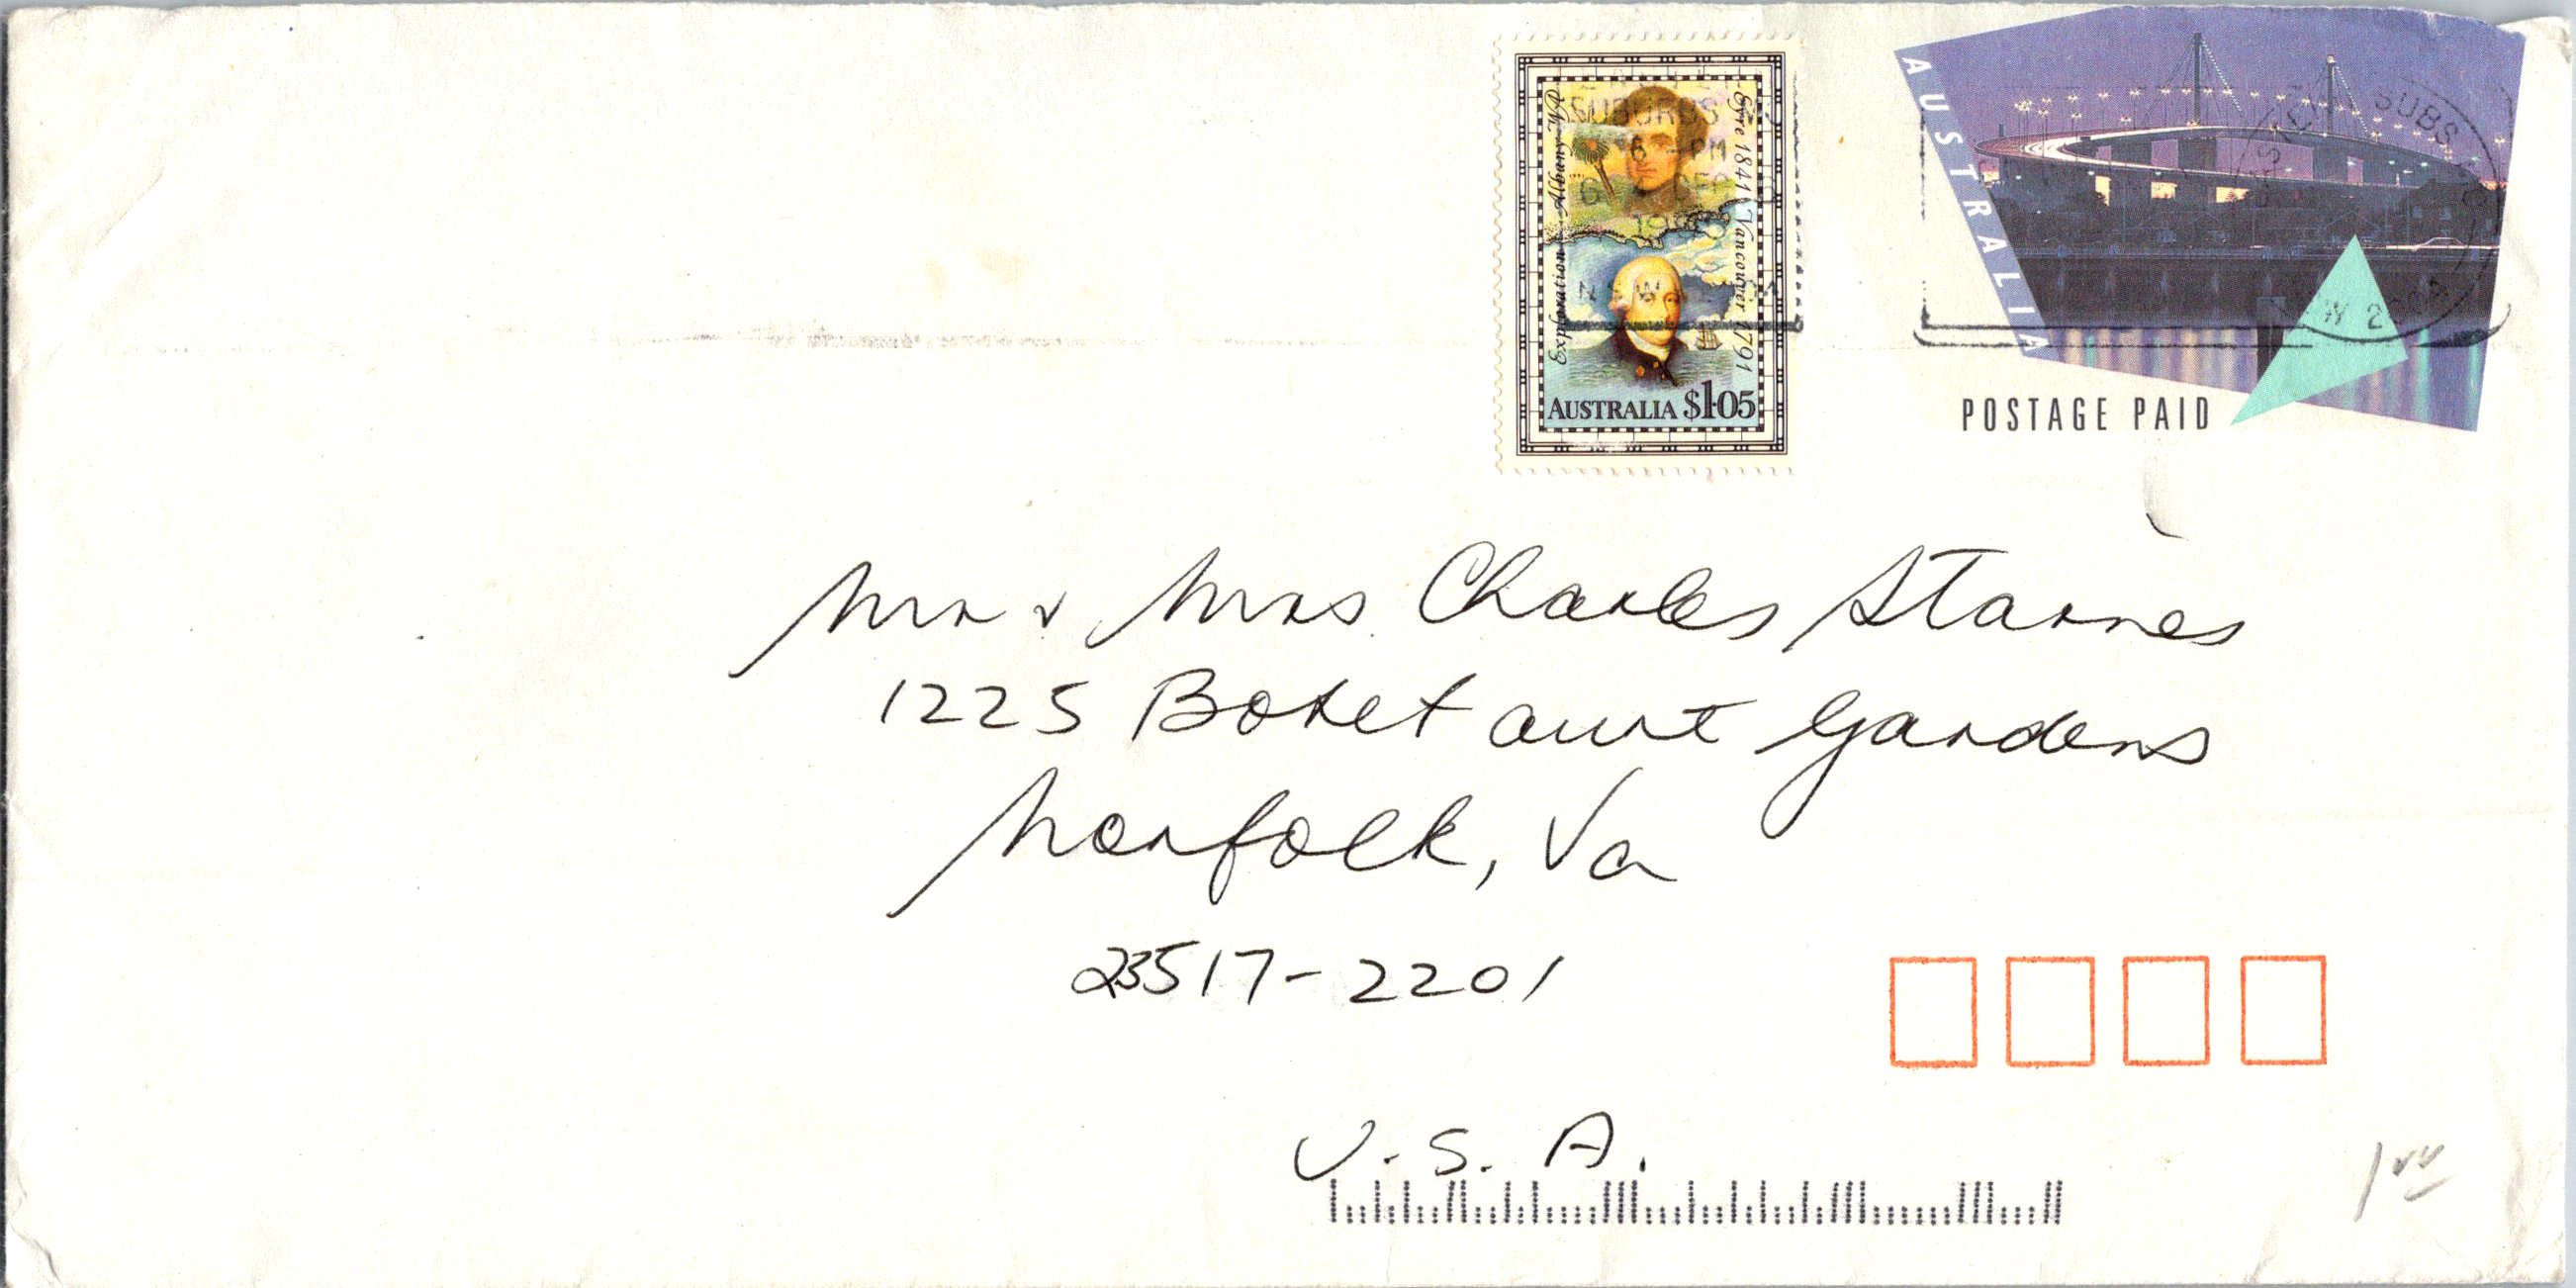 AUSTRALIA
POSTAGE PAID
Exploration - Albany WA
Eyre 1841 Vancouver 1791
AUSTRALIA $1.05
SUBURBS
6 - PM
6 SEP
N.S.W. AUST
SUBS
NSW
Mr & Mrs. Charles Starnes
1225 Botetourt Gardens
Norfolk, Va
23517-2201
U.S.A.